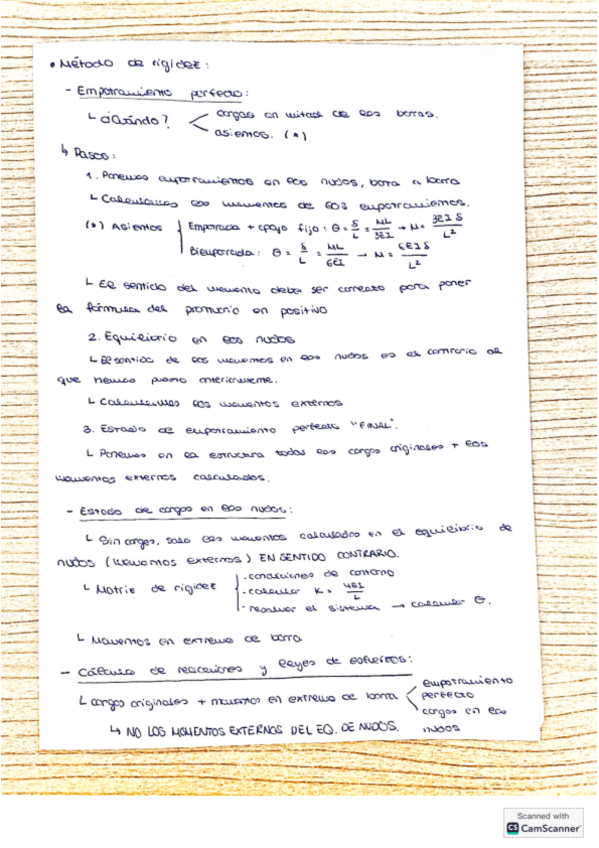 • Método de rigidez:
- Empotramiento perfecto:
↳ ¿Cuándo? cargas en mitad de las barras.
asientos. (*)
↳ Pasos:
1. Ponemos empotramientos en los nudos, barra a barra
↳ Calculamos los momentos de los empotramientos.
(*) Asientos Empotrada + apoyo fijo: θ = δ/L = ML/3EI → M = 3EIδ/L²
Biempotrada: θ = δ/L = ML/6EI → M = 6EIδ/L²
↳ El sentido del momento debe ser correcto para poner
la fórmula del prontuario en positivo
2. Equilibrio en los nudos
↳ El sentido de los momentos en los nudos es el contrario al
que hemos puesto anteriormente.
↳ Calculamos los momentos externos
3. Estado de empotramiento perfecto "FINAL".
↳ Ponemos en la estructura todas las cargas originales + los
momentos externos calculados.
- Estado de cargas en los nudos:
↳ Sin cargas, solo los momentos calculados en el equilibrio de
nudos (Momentos externos) EN SENTIDO CONTRARIO.
↳ Matriz de rigidez · condiciones de contorno
· calcular K = 4EI/L
· resolver el sistema → calcular θ.
↳ Momentos en extremo de barra
- Cálculo de reacciones y leyes de esfuerzos:
↳ cargas originales + momentos en extremo de barra empotramiento perfecto
cargas en los nudos
↳ NO LOS MOMENTOS EXTERNOS DEL EQ. DE NUDOS.
Scanned with
CS CamScanner